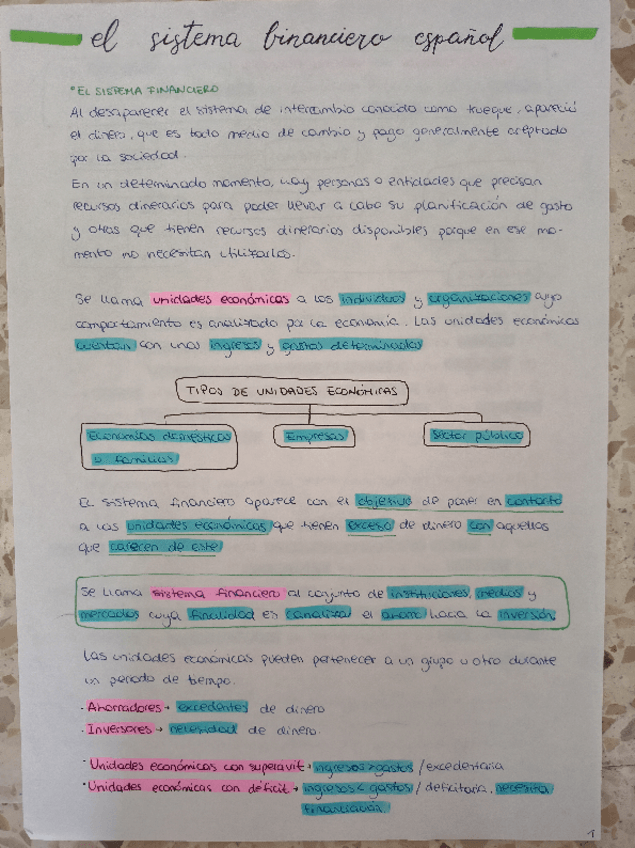 el sistema financiero español
*EL SISTEMA FINANCIERO
Al desaparecer el sistema de intercambio conocido como trueque, apareció
el dinero, que es todo medio de cambio y pago generalmente aceptado
por la sociedad.
En un determinado momento, hay personas o entidades que precisan
recursos dinerarios para poder llevar a cabo su planificación de gasto
y otras que tienen recursos dinerarios disponibles porque en ese mo-
mento no necesitan utilizarlos.
Se llama unidades económicas a los individuos y organizaciones cuyo
comportamiento es analizado por la economía. Las unidades económicas
cuentan con unos ingresos y gastos determinados
TIPOS DE UNIDADES ECONÓMICAS
Economías domésticas
o familias
Empresas
Sector público
El sistema financiero aparece con el objetivo de poner en contacto
a las unidades económicas que tienen exceso de dinero con aquellas
que carecen de este
Se llama sistema financiero al conjunto de instituciones, medios y
mercados cuya finalidad es canalizar el ahorro hacia la inversión.
Las unidades económicas pueden pertenecer a un grupo u otro durante
un periodo de tiempo.
· Ahorradores → excedentes de dinero
· Inversores → necesidad de dinero.
· Unidades económicas con superavit → ingresos > gastos / excedentaria
· Unidades económicas con déficit → ingresos < gastos / deficitaria, necesita
financiación.
1